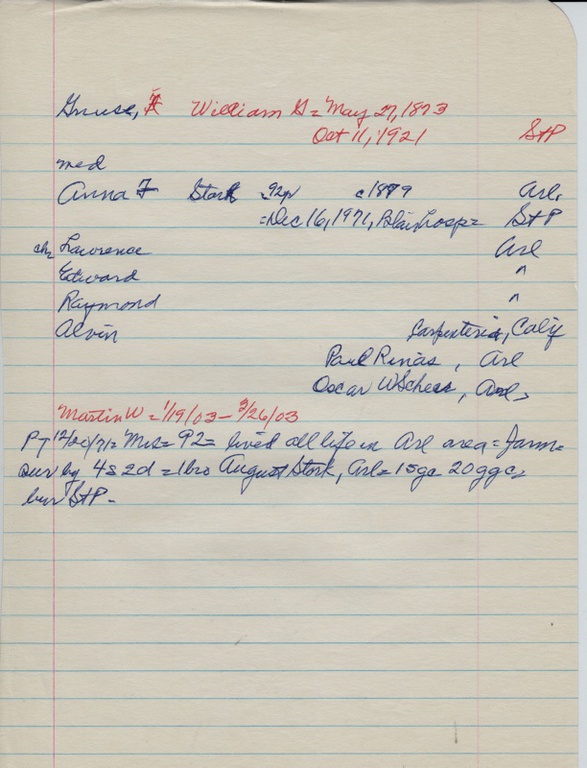 Gruse, William G = May 27, 1873
Oct 11, 1921 StP
med
Anna F Stork = 92yr c1879 Arl.
= Dec 16, 1971, Blair hosp = StP
ch = Lawrence Arl
Edward "
Raymond "
Alvin Carpenteria, Calif
Paul Renas, Arl
Oscar W Scheer, Arl,
Martin W = 1/19/03 - 3/26/03
PT 12/ /71 = Mrs = 92 = lived all life in Arl area = farm =
sur by 4s 2d = 1bro August Stork, Arl = 15gc 20ggc,
bur StP -